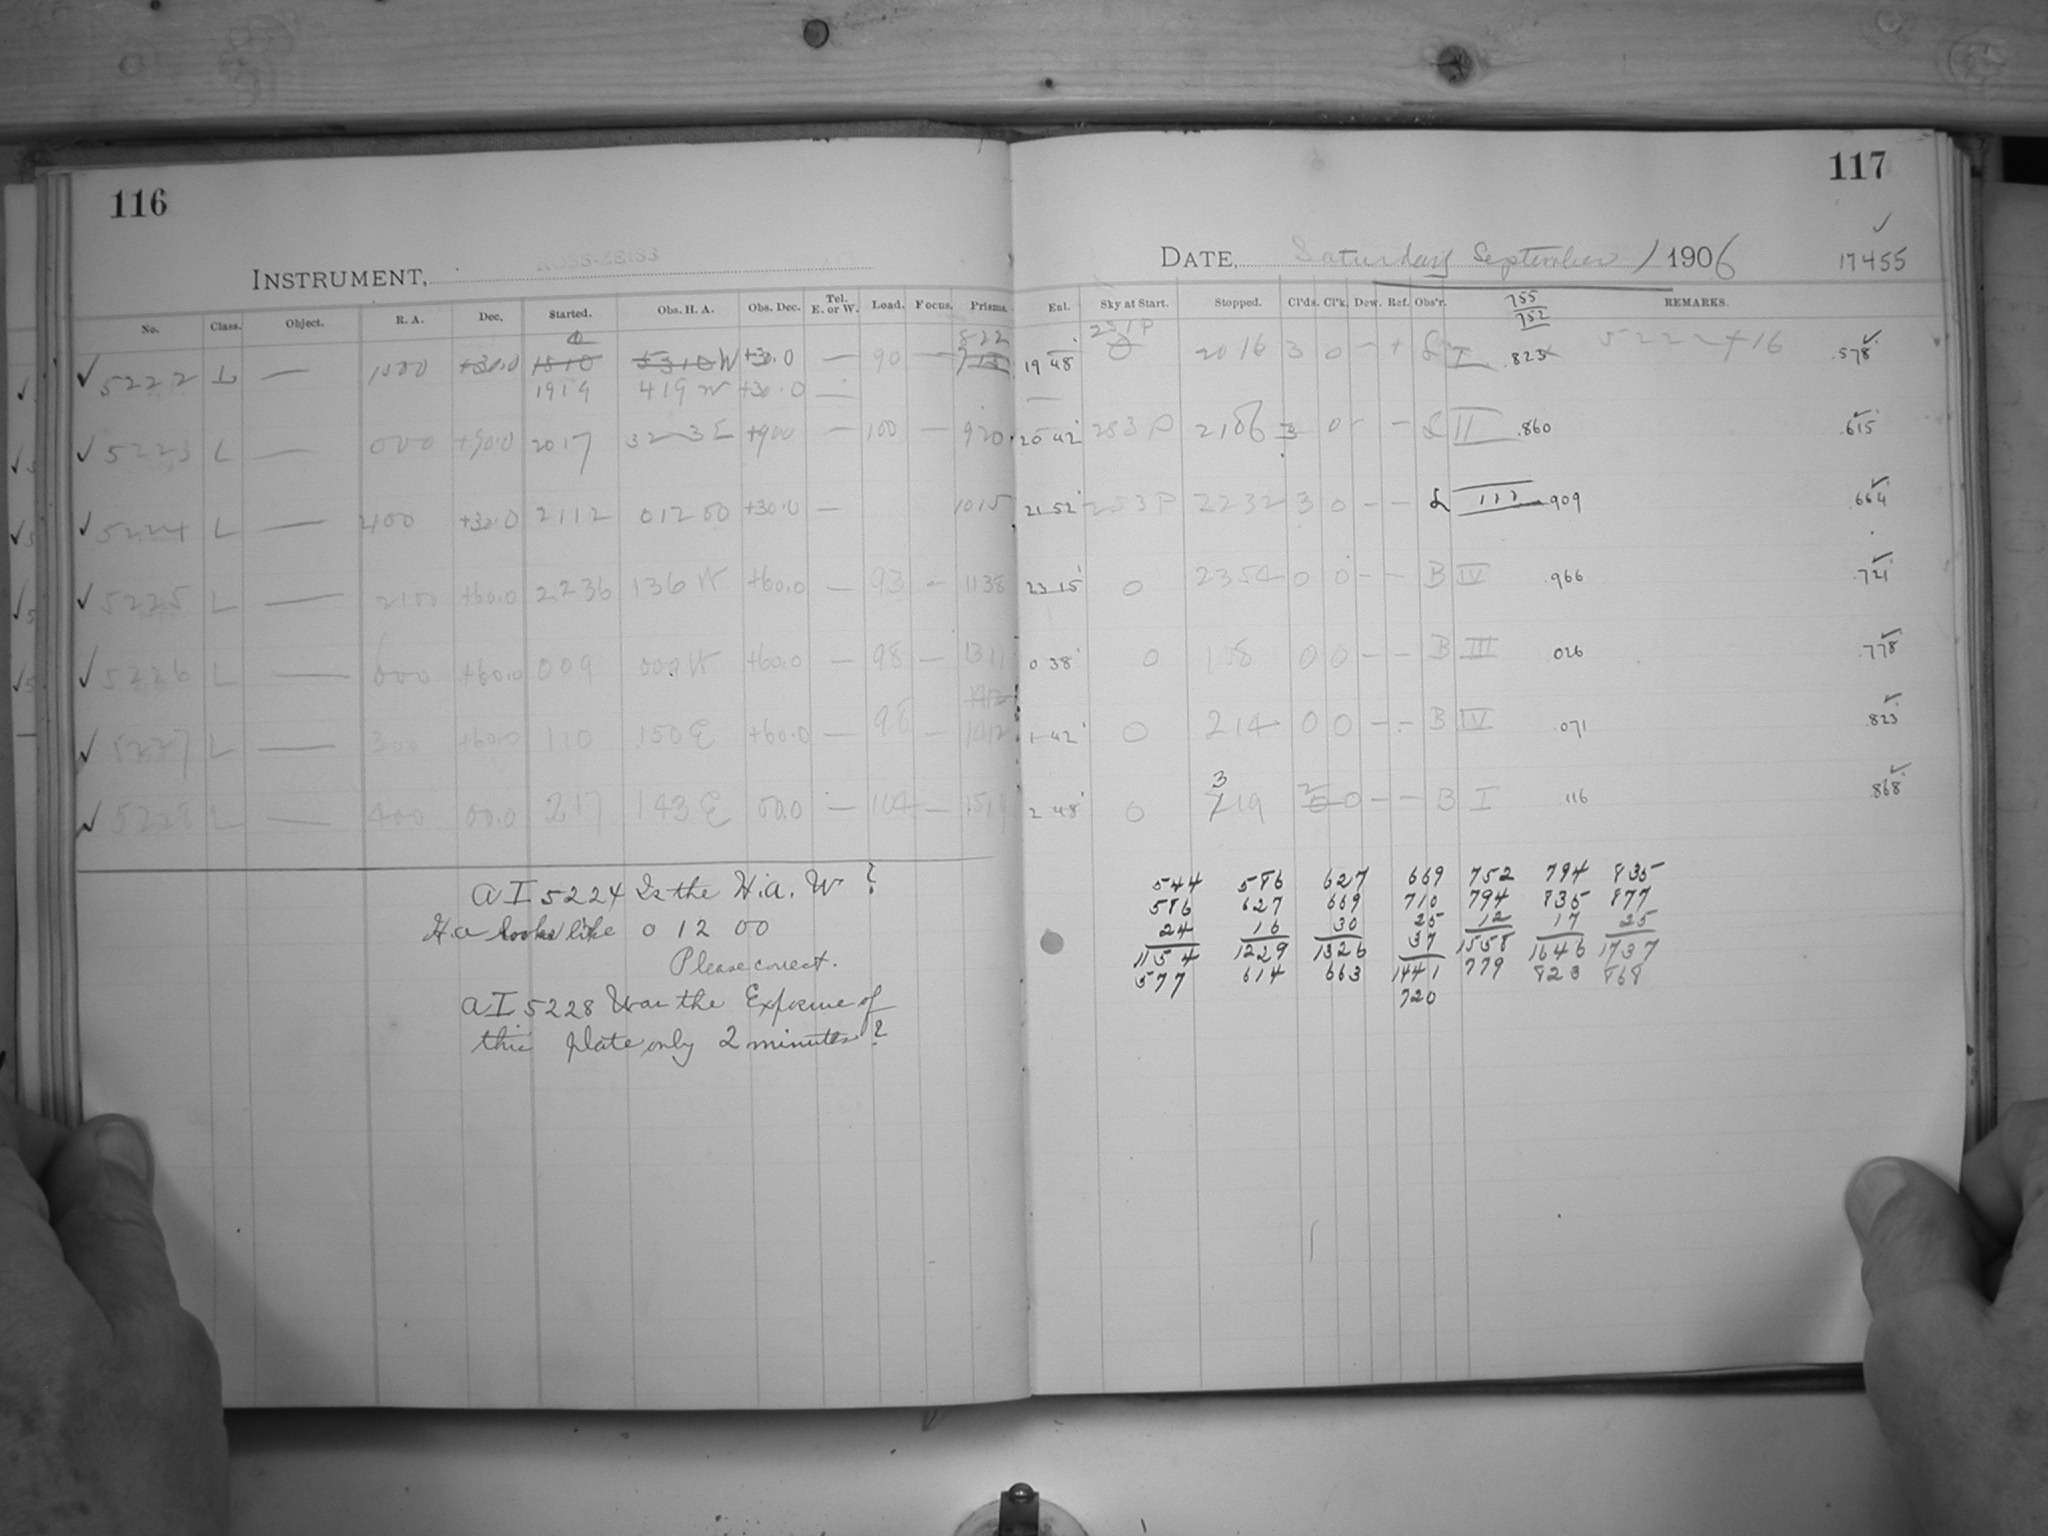 116
INSTRUMENT, ROSS-ZEISS
No. Class. Object. R. A. Dec. Started. Obs. H. A. Obs. Dec. Tel. E. or W. Load. Focus. Prisms.
822
✓ 5222 L — 1500 +30.0 1810 5310 W +30.0 — 90 — 713
1919 419 W +30.0 —
✓ 5223 L — 000 +90.0 2017 323 E +900 — 100 — 920
✓ 5224 L — 2100 +30.0 2112 01200 +30.0 — 1015
✓ 5225 L — 2100 +60.0 2236 136 W +60.0 — 93 – 1138
✓ 5226 L — 000 +60.0 009 009 W +60.0 — 98 — 1311
✓ 5227 L — 300 +60.0 110 150 E +60.0 — 98 – 1412
✓ 5228 L — 400 00.0 217 143 E 00.0 — 104 – 1519
AI 5224 Is the H.A. W ?
H.a looks like 0 12 00
Please correct.
AI 5228 Was the Exposure of
this plate only 2 minutes?
117
✓
DATE, Saturday September 1 1906 17455
Enl. Sky at Start. Stopped. Cl'ds. Cl'k. Dew. Ref. Obs'r. 755 REMARKS.
752
19 48 251P 0 2016 3 0 – + L I .823 5222 + 16 .578
20 42 253 P 2106 3 0 – – L II .860 .615
21 52 253 P 2232 3 0 – – L III .909 .664
23 15 0 2354 0 0 – – B IV .966 .721
0 38 0 108 0 0 – – B III .026 .778
1 42 0 214 0 0 – – B IV .071 .823
3
2 48 0 219 0 0 – – B I .116 .868
544 586 627 669 752 794 835
586 627 669 710 794 835 877
24 16 30 25 12 17 25
1154 1229 1326 37 1558 1646 1737
577 614 663 1441 779 823 868
720